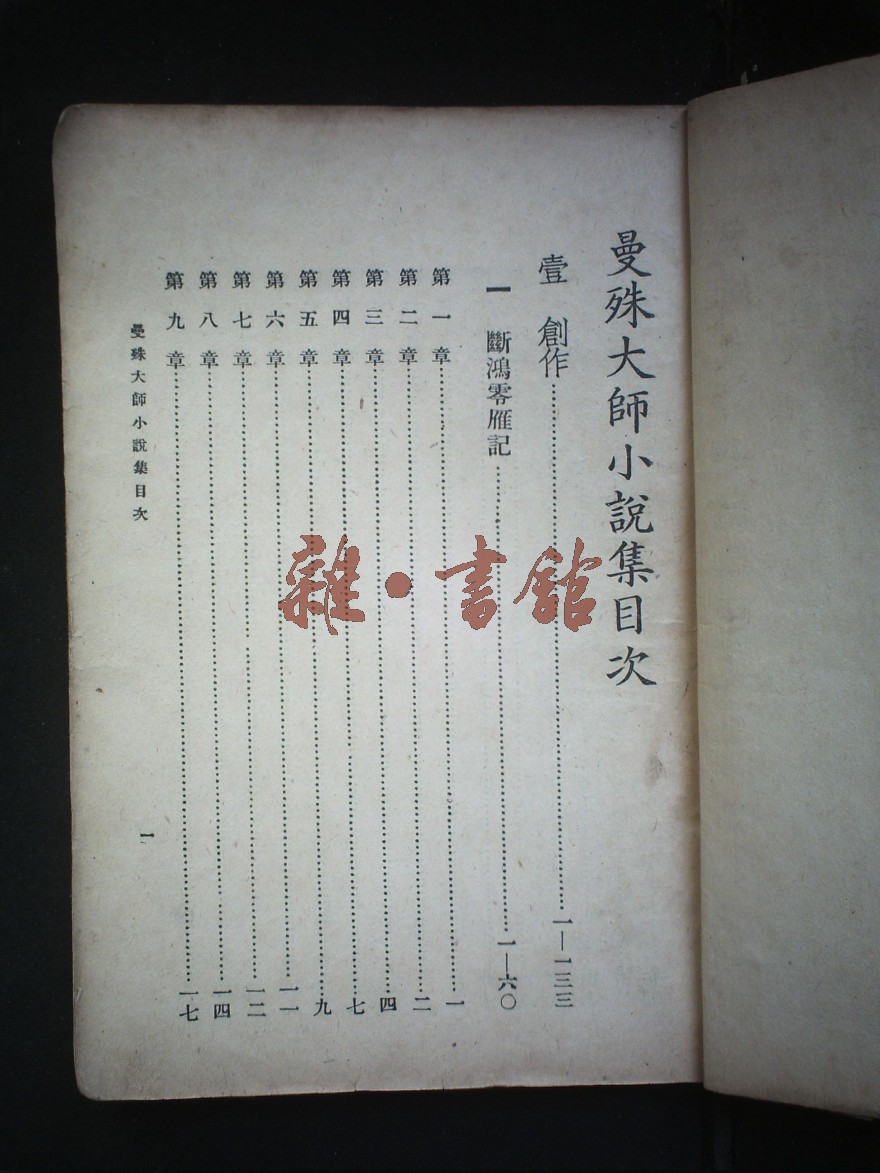 曼殊大師小說集目次
壹 創作……一—一三三
一 斷鴻零雁記……一—六〇
第一章……一
第二章……二
第三章……四
第四章……七
第五章……九
第六章……一一
第七章……一二
第八章……一四
第九章……一七
曼殊大師小說集目次
一
雜·書館